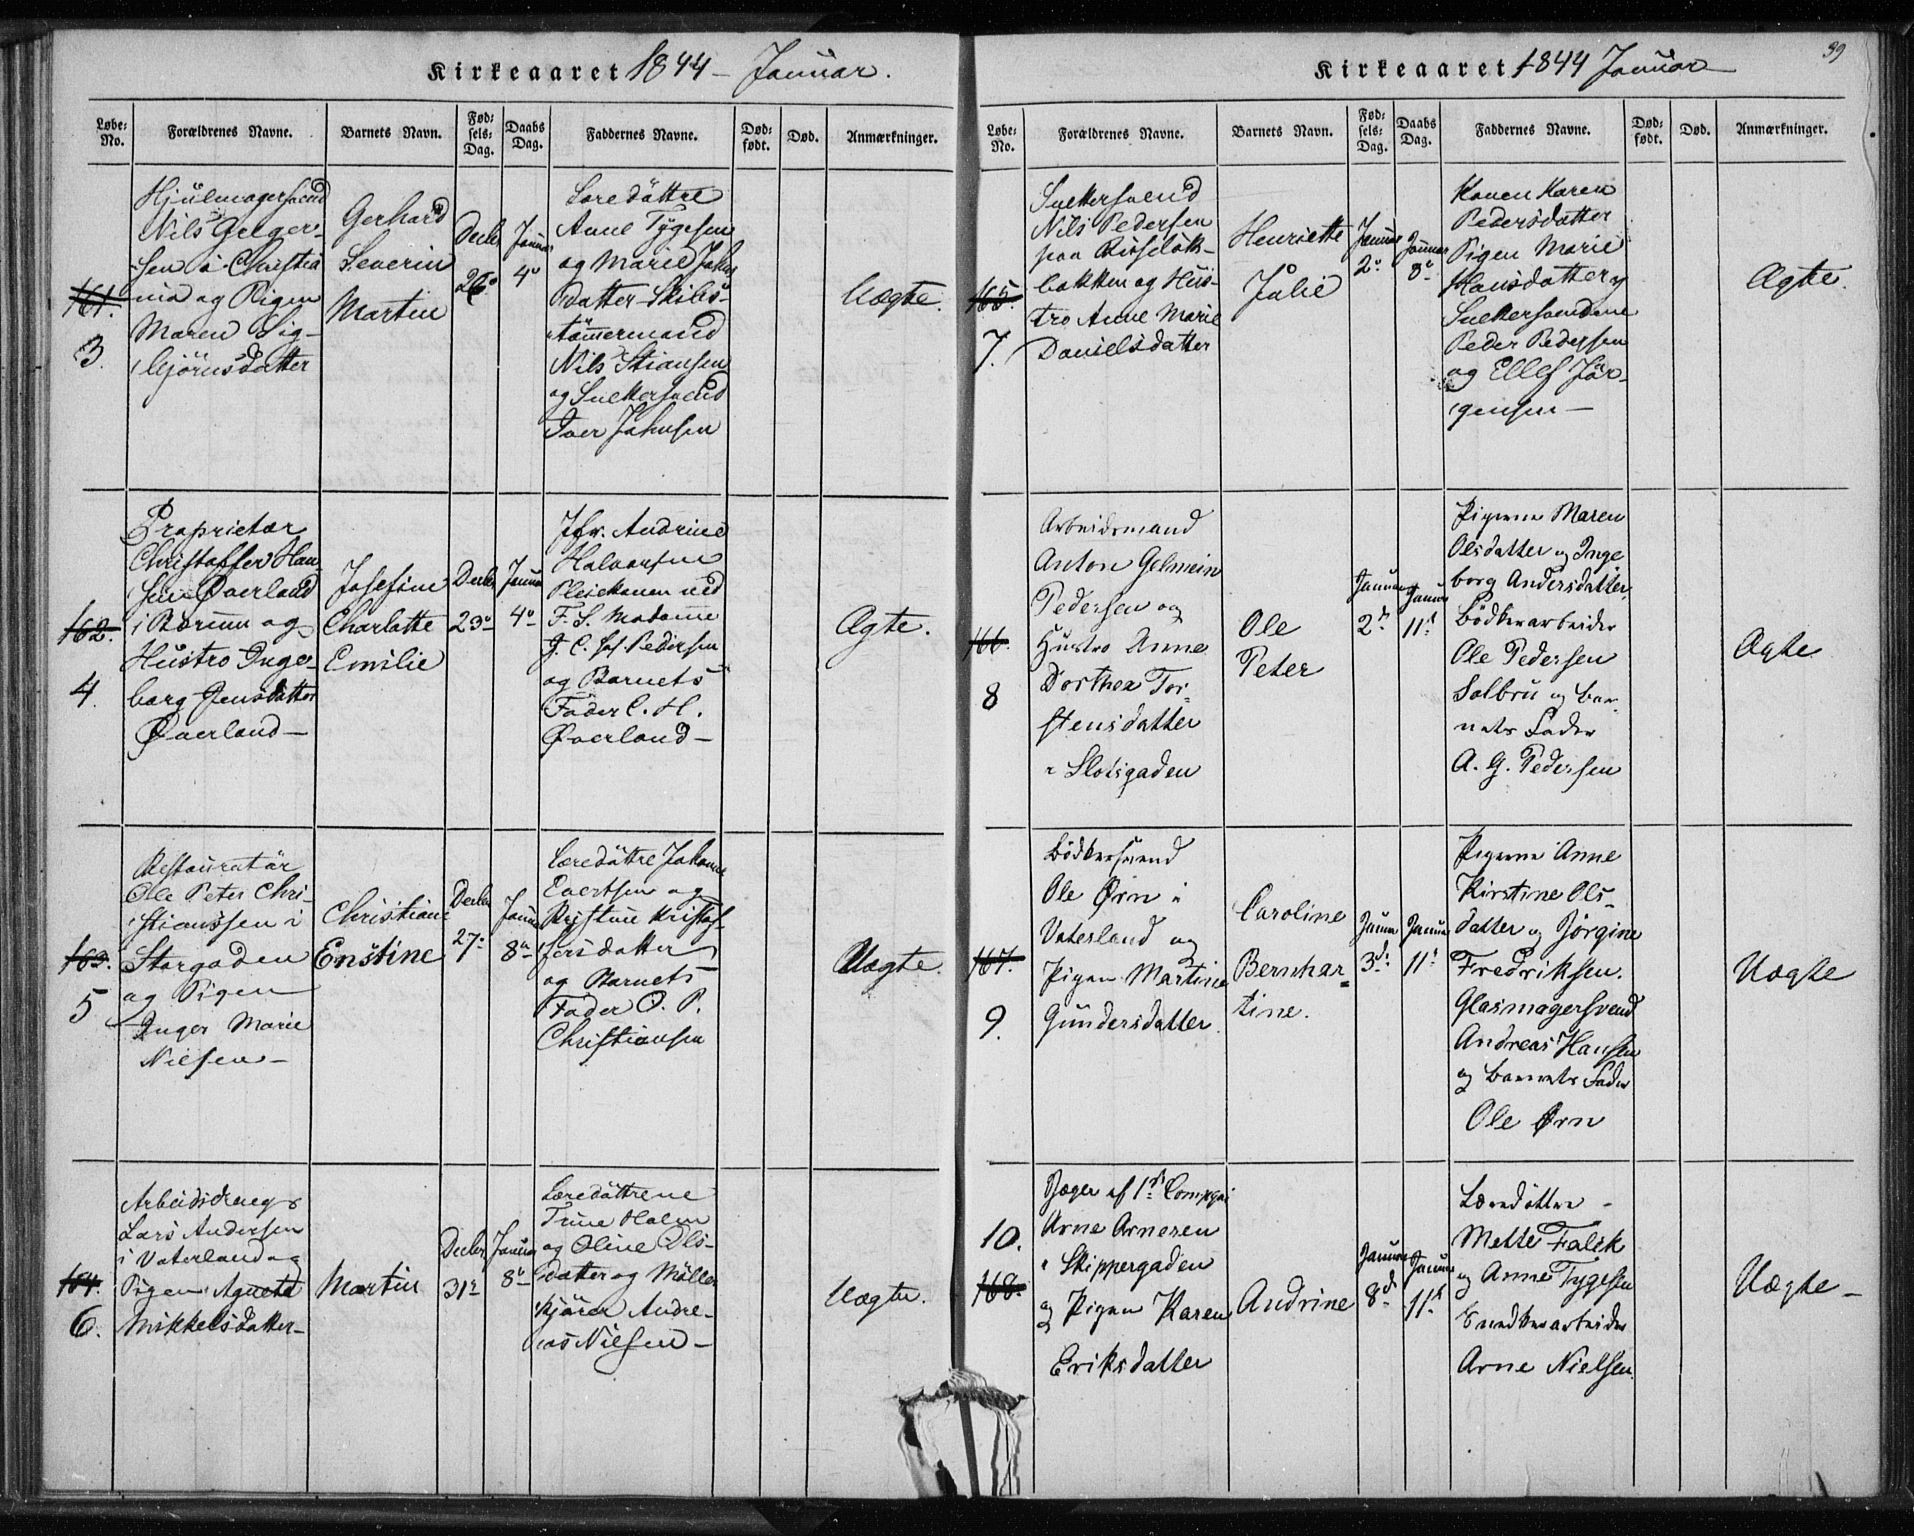 Kirkeaaret 1844 – Januar.
Løbe-No.
Forældrenes Navne.
Barnets Navn.
Fødsels-Dag.
Daabs Dag.
Faddernes Navne.
Død-født.
Død.
Anmærkninger.
161.
3.
Hjulmagersvend
Nils Gregersen
i Christiania
og Pigen
Maren Sigbjörnsdatter
Gerhard
Severin
Martin
Decbr
26°
Januar
4°
Loredöttre
Anne Tygesen
og Marie Johnsdatter
Skibstömmermand
Nils Stiansen
og Snekkersvend
Iver Johnsen
Uægte.
162.
4.
Proprietær
Christoffer Hansen
Øverland
i Bærum og
Hustro Ingeborg
Jensdatter
Øverland –
Josefine
Charlotte
Emilie
Decbr
23°
Januar
4°
Jfr. Andrine
Halvorsen
Pleiekonen ved
F. S. Madame
Pedersen
og Barnets
Fader C. H.
Øverland –
Ægte.
163.
5
Restauratör
Ole Peter Christianssen
i
Storgaden
og Pigen
Inger Marie
Nielsen –
Christiane
Enstine
Decbr
27
Januar
8
Læredöttre Johanne
Evertsen og
Kristine Kristoffersdatter
og Barnets
Fader O. P.
Christiansen
Uægte.
164.
6.
Arbeidsdreng
Lars Andersen
i Vaterland og
Pigen Agnethe
Mikkelsdatter –
Martin
Decbr
31
Januar
8
Læredöttrene
Trine Holm
og Oline Olsdatter
og Möllerkjörer
Andreas
Nielsen –
Uægte.
Kirkeaaret 1844 Januar
99
Løbe-No.
Forældrenes Navne.
Barnets Navn.
Fødsels-Dag.
Daabs Dag.
Faddernes Navne.
Død-født.
Død.
Anmærkninger.
165.
7.
Snekkersvend
Nils Pedersen
paa Russelökbakken
og Hustro
Anne Marie
Danielsdatter
Henriette
Julie
Januar
2
Januar
8
Konen Karen
Pedersdatter
Pigen Marie
Hansdatter og
Snekkersvendene
Peder Pedersen
og Ellef Jörgensen –
Ægte.
166.
8
Arbeidsmand
Anton Gelmein
Pedersen og
Hustro Anne
Dorthea Torstensdatter
i Slotsgaden
Ole
Peter
Januar
2
Januar
11
Pigerne Maren
Olsdatter og Ingeborg
Andersdatter,
Bödkerarbeider
Ole Pedersen
Solbru og Barnets
Fader
A. G. Pedersen
Ægte
167.
9.
Bödkersvend
Ole Ørn i
Vaterland og
Pigen Martine
Gundersdatter.
Caroline
Bernhartine.
Januar
3
Januar
11
Pigerne Anne
Kirstine Olsdatter
og Jörgine
Fredriksen.
Glasmagersvend
Andreas Hansen
og Barnets Fader
Ole Ørn
Uægte
10.
168.
Jæger af 1ste Compgni
Arne Arnesen
i Skippergaden
og Pigen Karen
Eriksdatter
Andrine
Januar
8
Januar
11
Læredöttre –
Mette Falck
og Anne Tygesen
Snedkerarbeider
Arne Nielsen
Uægte –